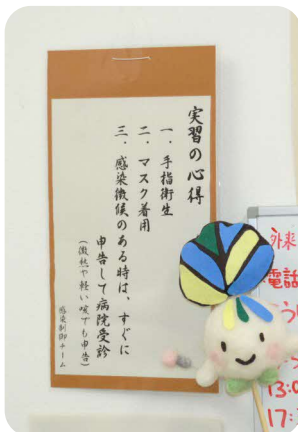 実習の心得
一．手指衛生
二．マスク着用
三．感染徴候のある時は、すぐに
申告して病院受診
（微熱や軽い咳でも申告）
感染制御チーム
外来
電話
13:0
17: